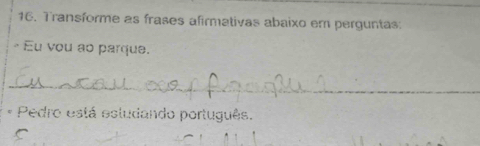 16. Transforme as frases afirmativas abaixo em perguntas:
• Eu vou ao parque.
Eu vou ao parque ?
• Pedro está estudando português.